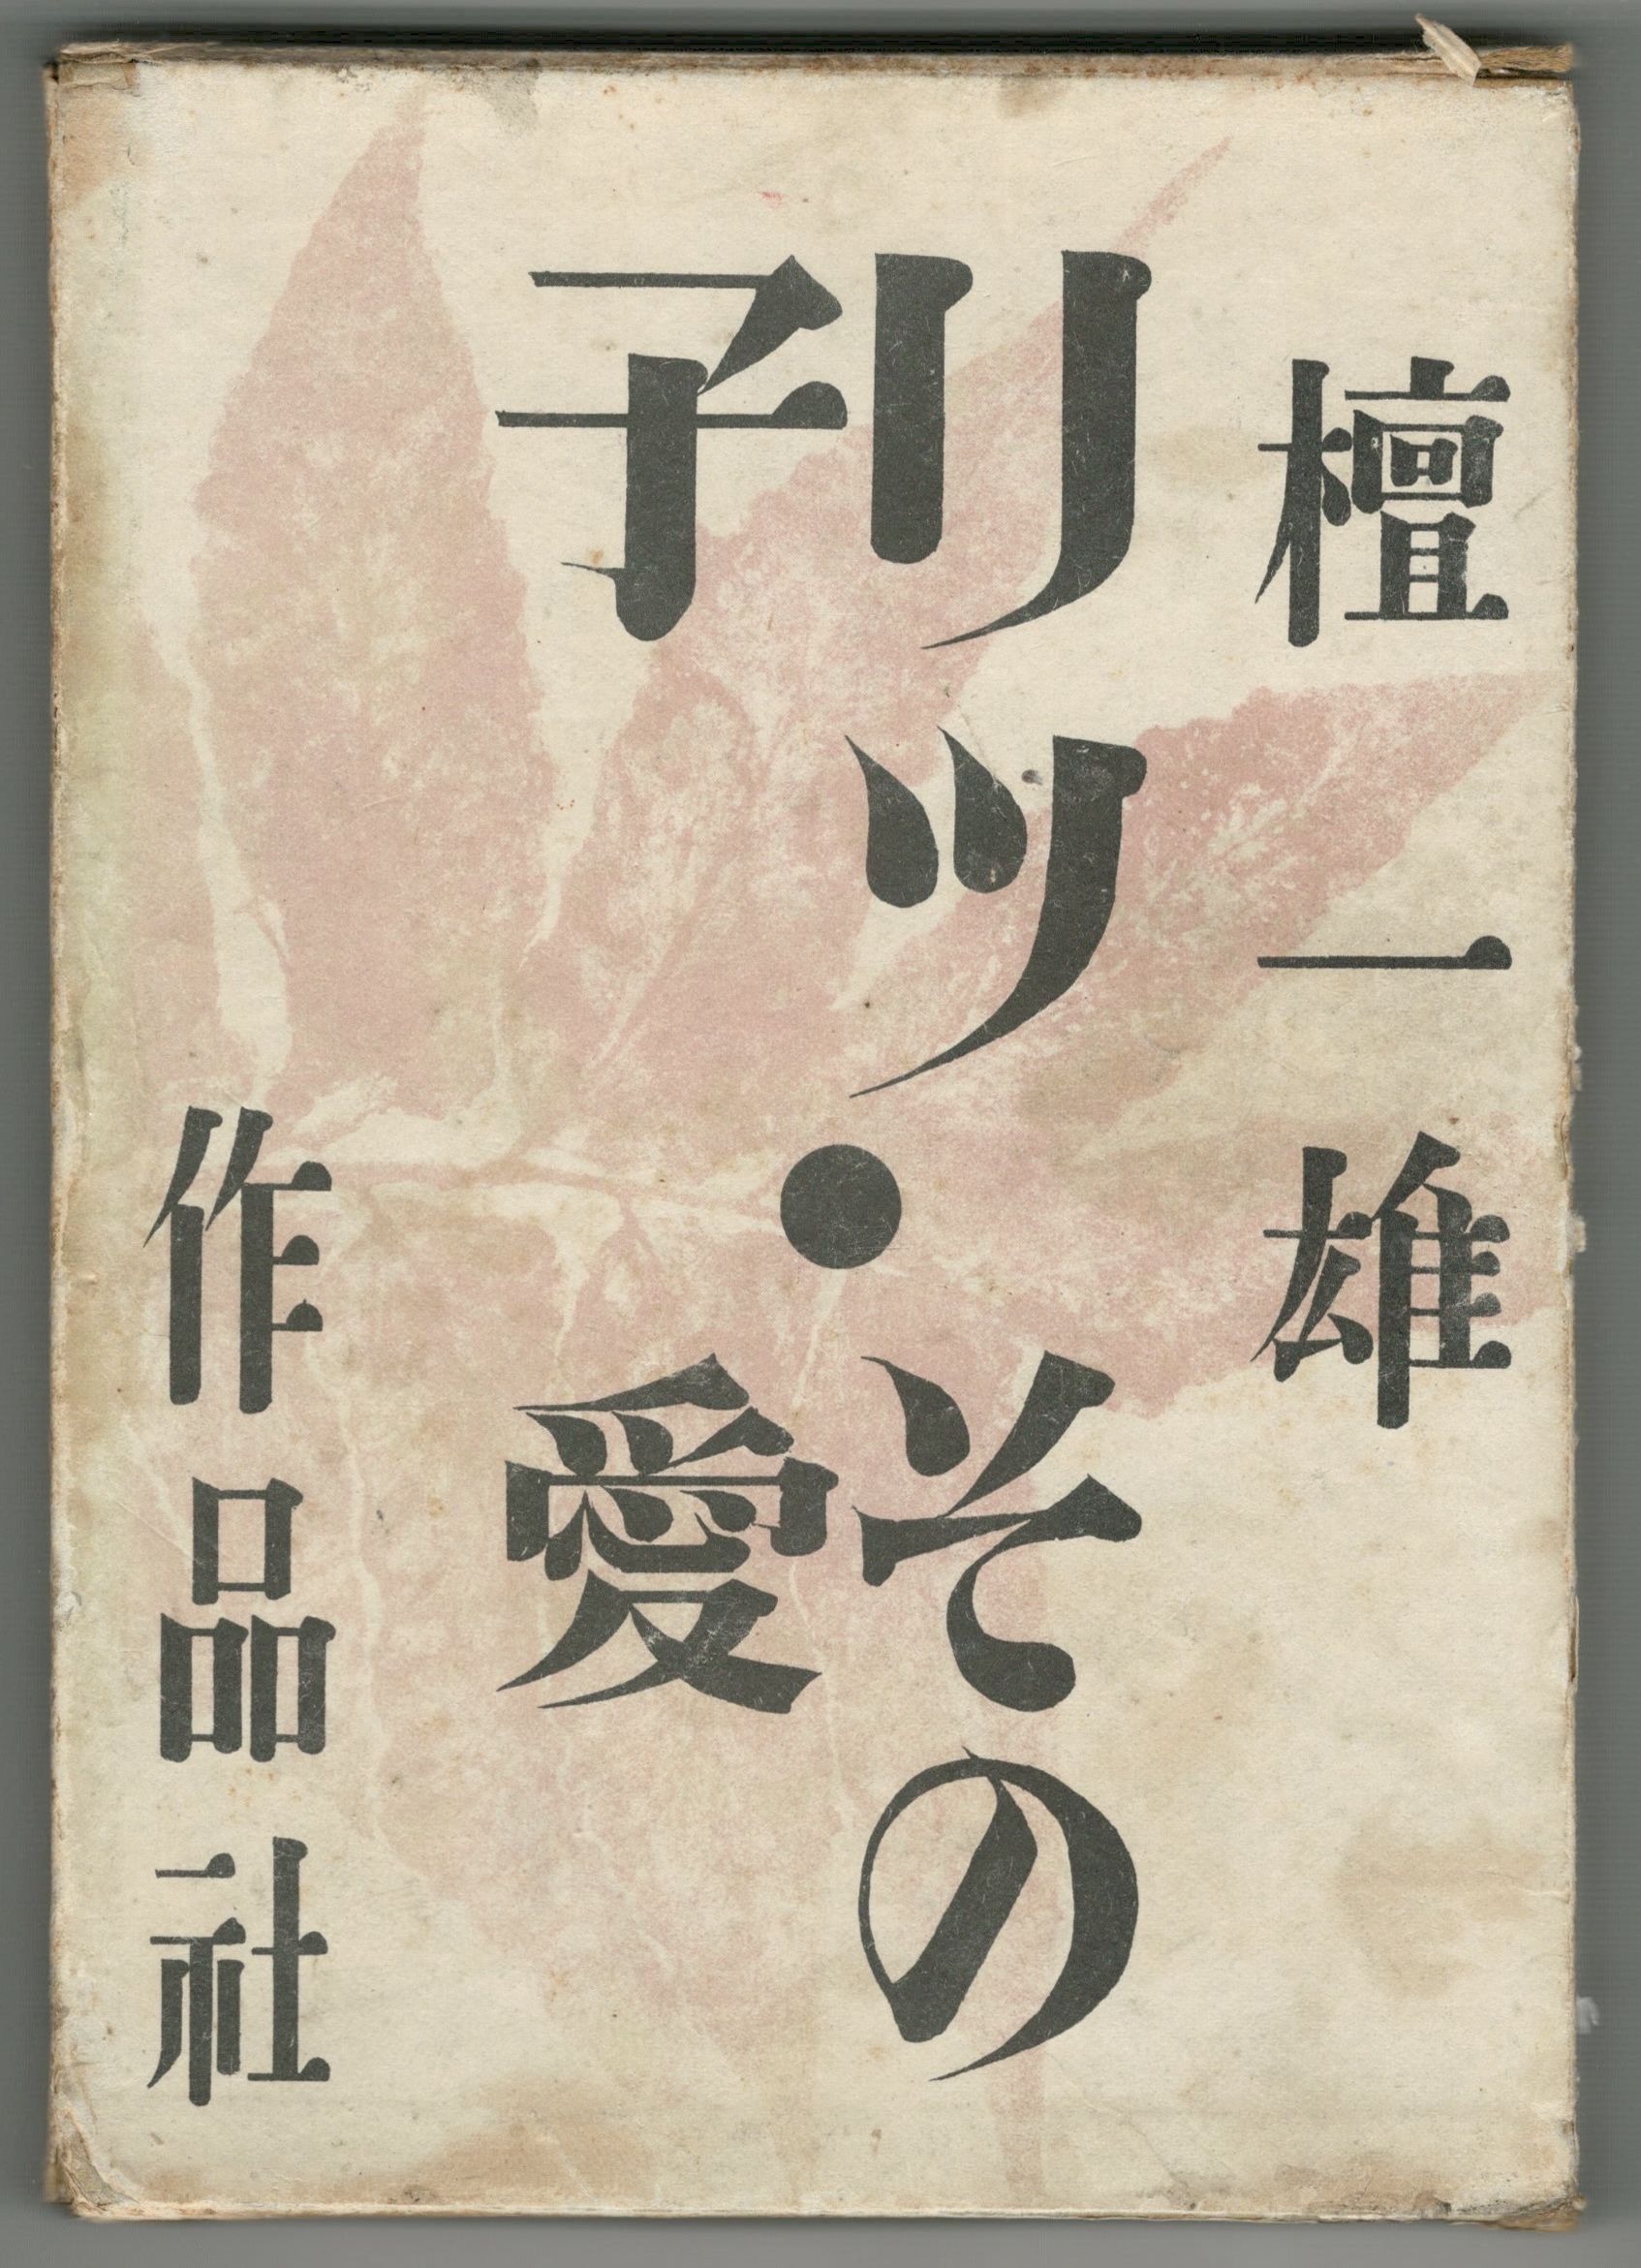 檀一雄
リツ子・その愛
作品社